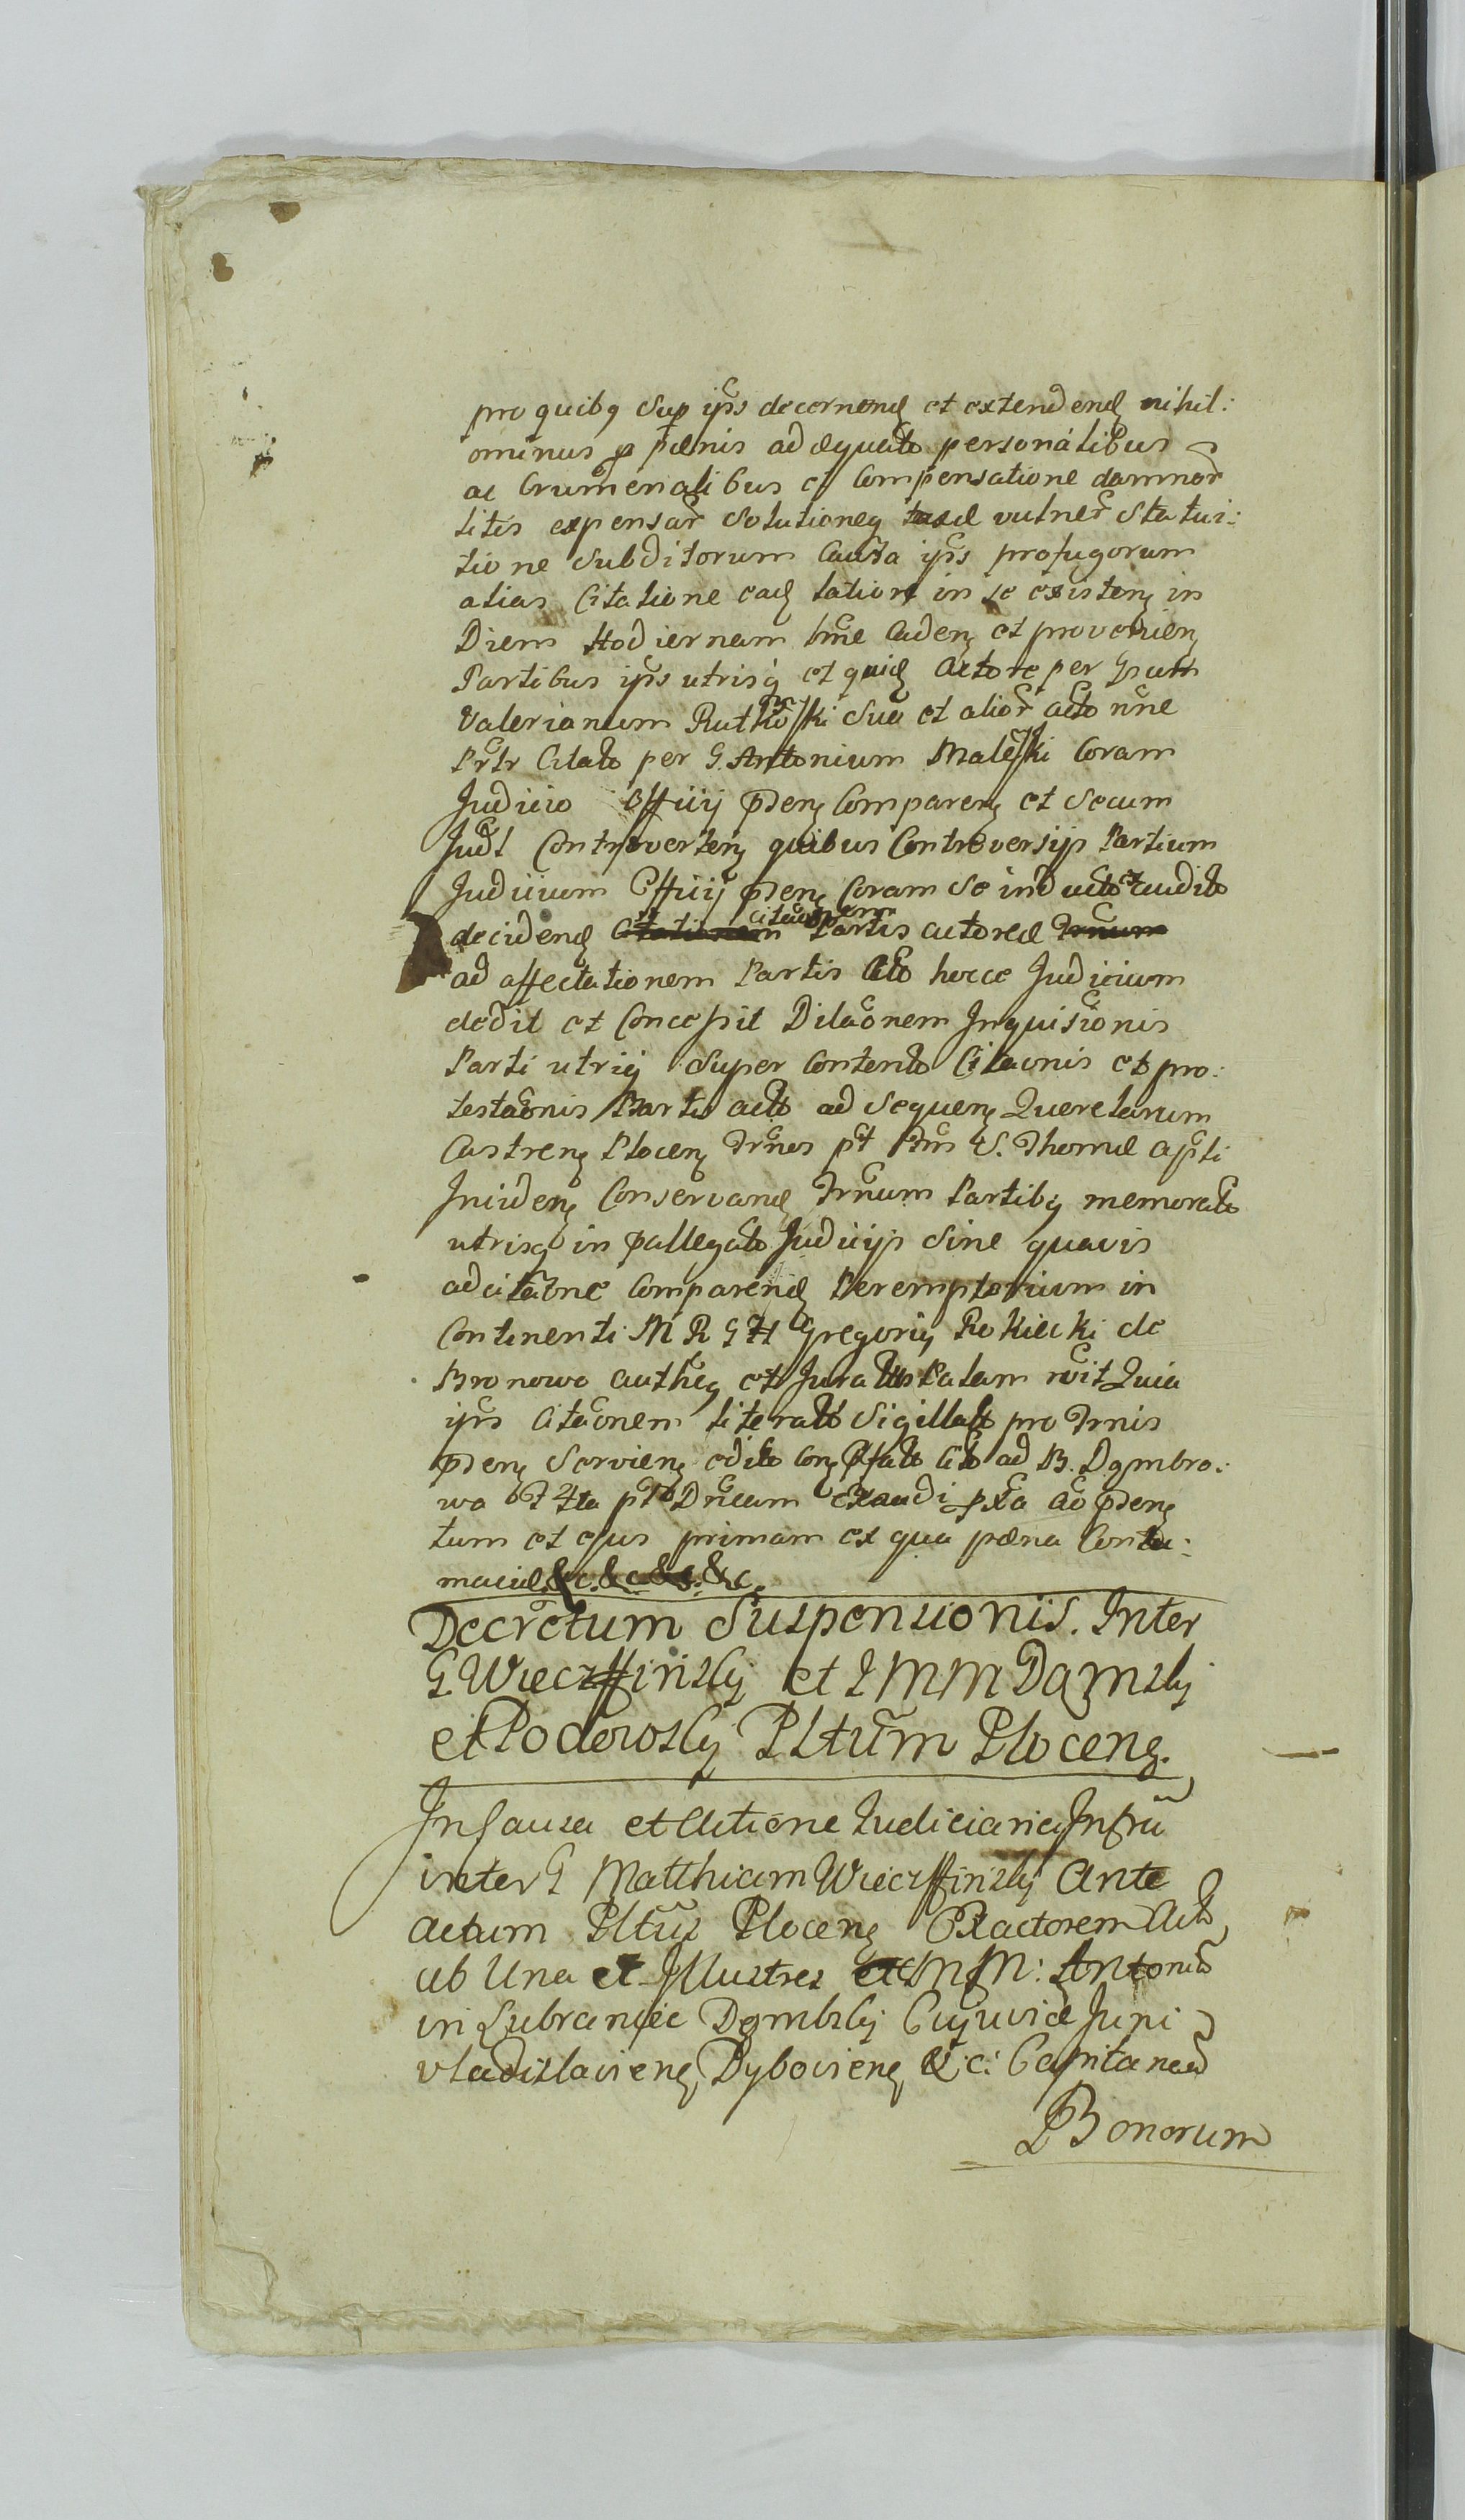 pro quibq Sup ips decernend et extendend nihil:
ominus p pænis adæquato personalibus
ac Crumenalibus et Compensatione damnor
litis expensar Solutioneq taxæ vulner Statui:
tione Subditorum Causa ips profugorum
alias Citatione ead latiori in se existen in
Diem Hodiernam tme Caden et provenien
Partibus ips utrisq et quid Actore per Gsum
Valerianum Rutkowski Suo et alior acto nne
Citato per G. Antonium Maleski Coram
Judicio Officij pden Comparen et Secum
Judl Controverten quibus Controversijs Partium
Judicium Officij pden Coram Se inducto et audito
deciden Citationem Citationem Partis actoreæ Trnum
ad affectationem Partis Cito hocce Judicium
dedit et Concessit Dilaonem Inquisionis
Parti utriq Super Contento Citaonis et pro:
testaonis Partis acto ad Sequen Querelarum
Castren Plocen Trnos pt ftm S. Thomæ Apli
Inciden Conservand Trnum Partibq memorato
utrisq in pallegato Judicijs Sine quavis
adcitaone Comparend Peremptorium in
Continenti M R G H Gregorius Rokicki de
Bronowo authen et Juratus Palam rvit Quia
ips Citaonem literato Sigillato pro Trnis
pden Servien edito Con Cito ad B. Dombro:
wo pt Dncam Exaudi pxa Ao pden
tum et ejus primam ex qua pæna Contu:
maciæ &c. &c. &c. &c.
Decretum Suspensionis. Inter
G Wieczffinskij et I M M Dąmskij
et Podowskij Pltum Plocen.
In Causa et Actione Iudiciaria Infra
inter G Matthiam Wieczffinskij Ante
actum Pltus Plocen Exactorem Acto
ab Una et Illustres et M M: Antoniu
in Lubraniec Dąmbskij Cujuviæ Juni
Vladislavien, Dybovien &c: Capitaneu
Bonorum